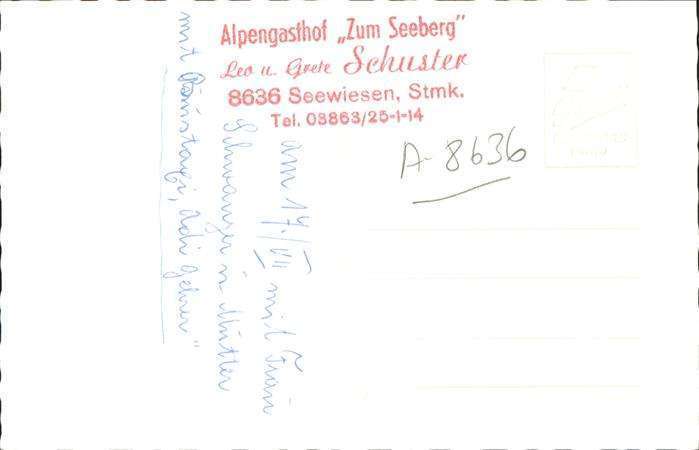 Alpengasthof „Zum Seeberg"
Leo u. Grete Schuster
8636 Seewiesen, Stmk.
Tel. 03863/25-1-14
A-8636
am 17./VII mit Frau
Schwanzer u. Mutter
mit